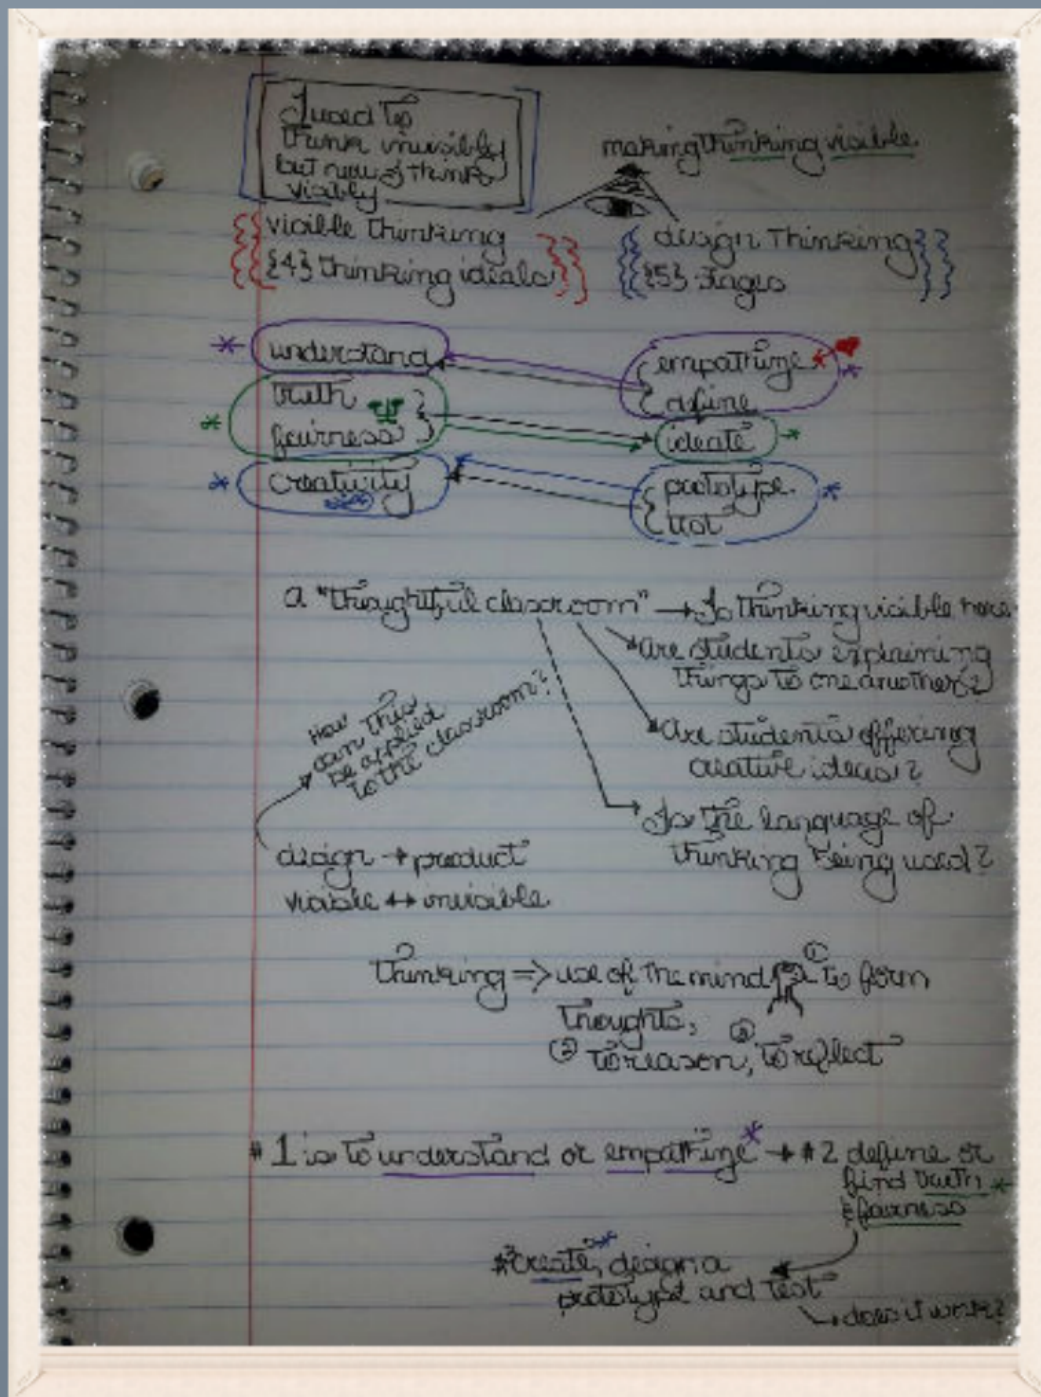 I used to
think invisibly
but now I think
visibly
making thinking visible
visible thinking
{4} thinking ideals
design thinking
{5} stages
understand
truth
fairness
creativity
empathize
define
ideate
prototype
test
a "thoughtful classroom" → Is thinking visible here
Are students explaining
things to one another?
Are students offering
creative ideas?
Is the language of
thinking being used?
How
can this
be applied
to the classroom?
design → product
visible ↔ invisible
thinking => use of the mind ① to form
thoughts,
② to reason, ③ to reflect
#1 is to understand or empathize * → #2 define or
find truth *
& fairness
#3 create, * design a
prototype and test
→ does it work?